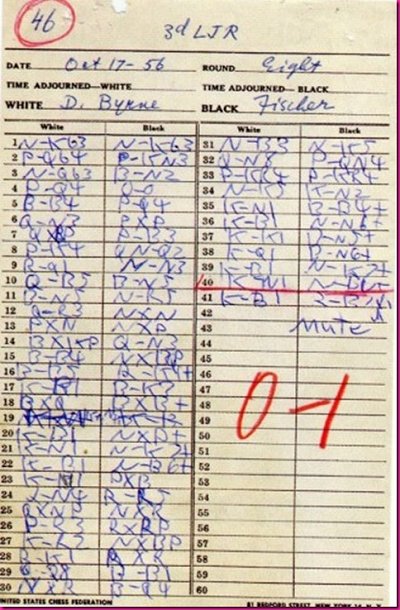 46
3d LJR
DATE Oct 17-56 ROUND Eight
TIME ADJOURNED—WHITE TIME ADJOURNED— BLACK
WHITE D. Byrne BLACK Fischer
White Black White Black
1 N-KB3 N-KB3
2 P-QB4 P-KN3
3 N-QB3 B-N2
4 P-Q4 O-O
5 B-B4 P-Q4
6 Q-N3 PXP
7 P-B3
8 P-K4 QN-Q2
9 R-Q1 N-N3
10 Q-B5 B-N5
11 B-N5 N-R5
12 Q-R3 NXN
13 PXN NXP
14 BXKP Q-N3
15 B-B4 NXBP
16 B-B5
17 K-B1 B-K3
18 BXQ BXB+
19
20 K-B1 NXP+
21 K-N1 N-K7+
22 K-B1 N-B6+
23 PXB
24 Q-N4 R-R5
25 QXNP NXR
26 P-R3 RXRP
27 K-R2 NXBP
28 R-K1 RXR
29 B-B1
30 NXR B-Q4
31 N-B3 N-K5
32 Q-N8 P-QN4
33 P-KR4 P-KR4
34 N-K5 K-N2
35 K-N1 B-B4+
36 K-B1 N-N6+
37 K-K1 B-N5+
38 K-Q1 B-N6+
39 K-B1 N-K7+
40 K-N1 N-B6+
41 K-B1
42
43 Mate
44
45
46
47
48
49
50
51
52
53
54
55
56
57
58
59
60
0-1
UNITED STATES CHESS FEDERATION